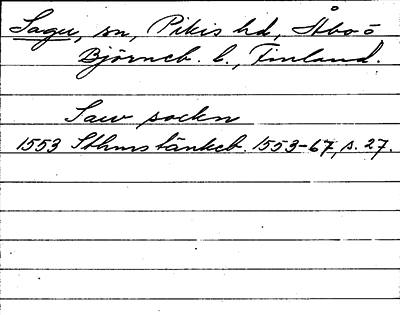 Sagu, sn, Pikis hd, Åbo o
Björneb. l., Finland.
Saw sockn
1553 Sthms tänkeb. 1553-67, s. 27.